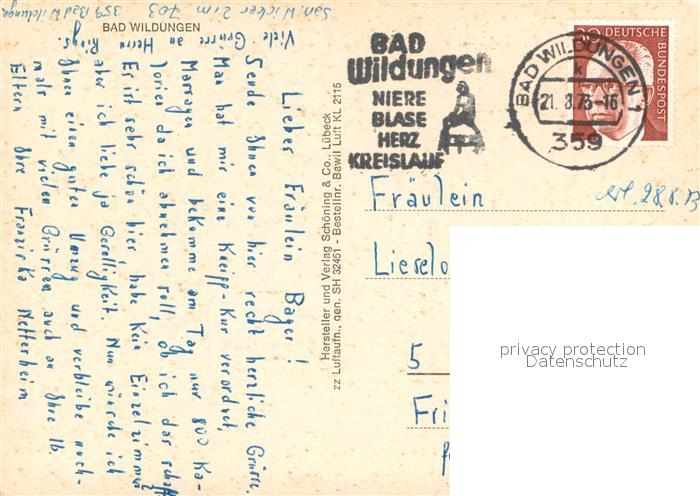 San. Wicker Zim 703
359 Bad Wildungen
BAD WILDUNGEN
Lieber Fräulein Bayer!
Sende Ihnen von hier recht herzliche Grüsse.
Man hat mir eine Kneipp-Kur verordnet,
Massagen und bekomme am Tag nur 800 Ka-
lorien da ich abnehmen soll, ob ich das schaff
Es ist sehr schön hier, habe kein Einzelzimmer
aber ich liebe ja Geselligkeit. Nun wünsche ich
Ihnen einen guten Umzug und verbleibe noch-
mals mit vielen Grüssen auch an Ihre lb.
Eltern Ihre Franziska Netterheim
Viele Grüsse an Herrn
Hersteller und Verlag Schöning & Co., Lübeck
zz Luftaufn., gen. SH 32451 - Bestellnr. Bawil Luft KL 2115
BAD
Wildungen
NIERE
BLASE
HERZ
KREISLAUF
BAD WILDUNGEN 1
k
21. 8. 73-16
359
30 DEUTSCHE
BUNDESPOST
28.8.73
Fräulein
Lieselo
5
Fri
privacy protection
Datenschutz